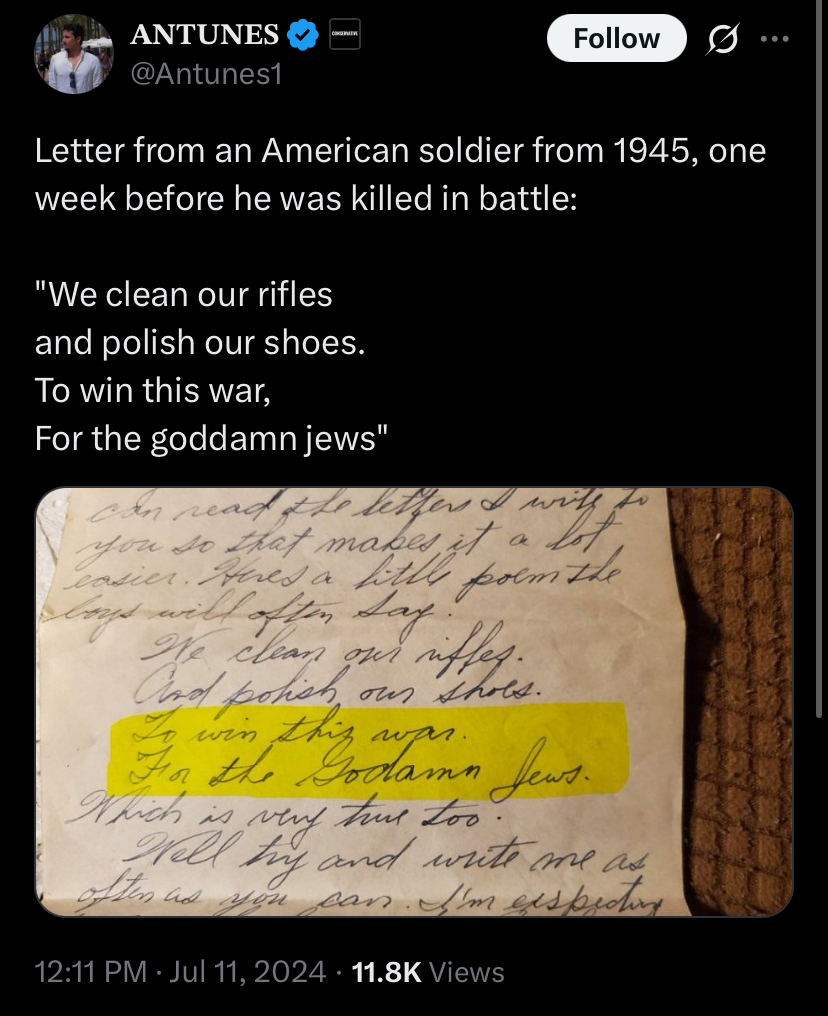 ANTUNES
CONSERVATIVE
@Antunes1
Follow
Letter from an American soldier from 1945, one
week before he was killed in battle:
"We clean our rifles
and polish our shoes.
To win this war,
For the goddamn jews"
can read the letters I write to
you so that makes it a lot
easier. Heres a little poem the
boys will often say.
We clean our riffles.
And polish our shoes.
To win this war.
For the Godamn Jews.
Which is very true too.
Well try and write me as
often as you can. I'm exspecting
12:11 PM · Jul 11, 2024 · 11.8K Views